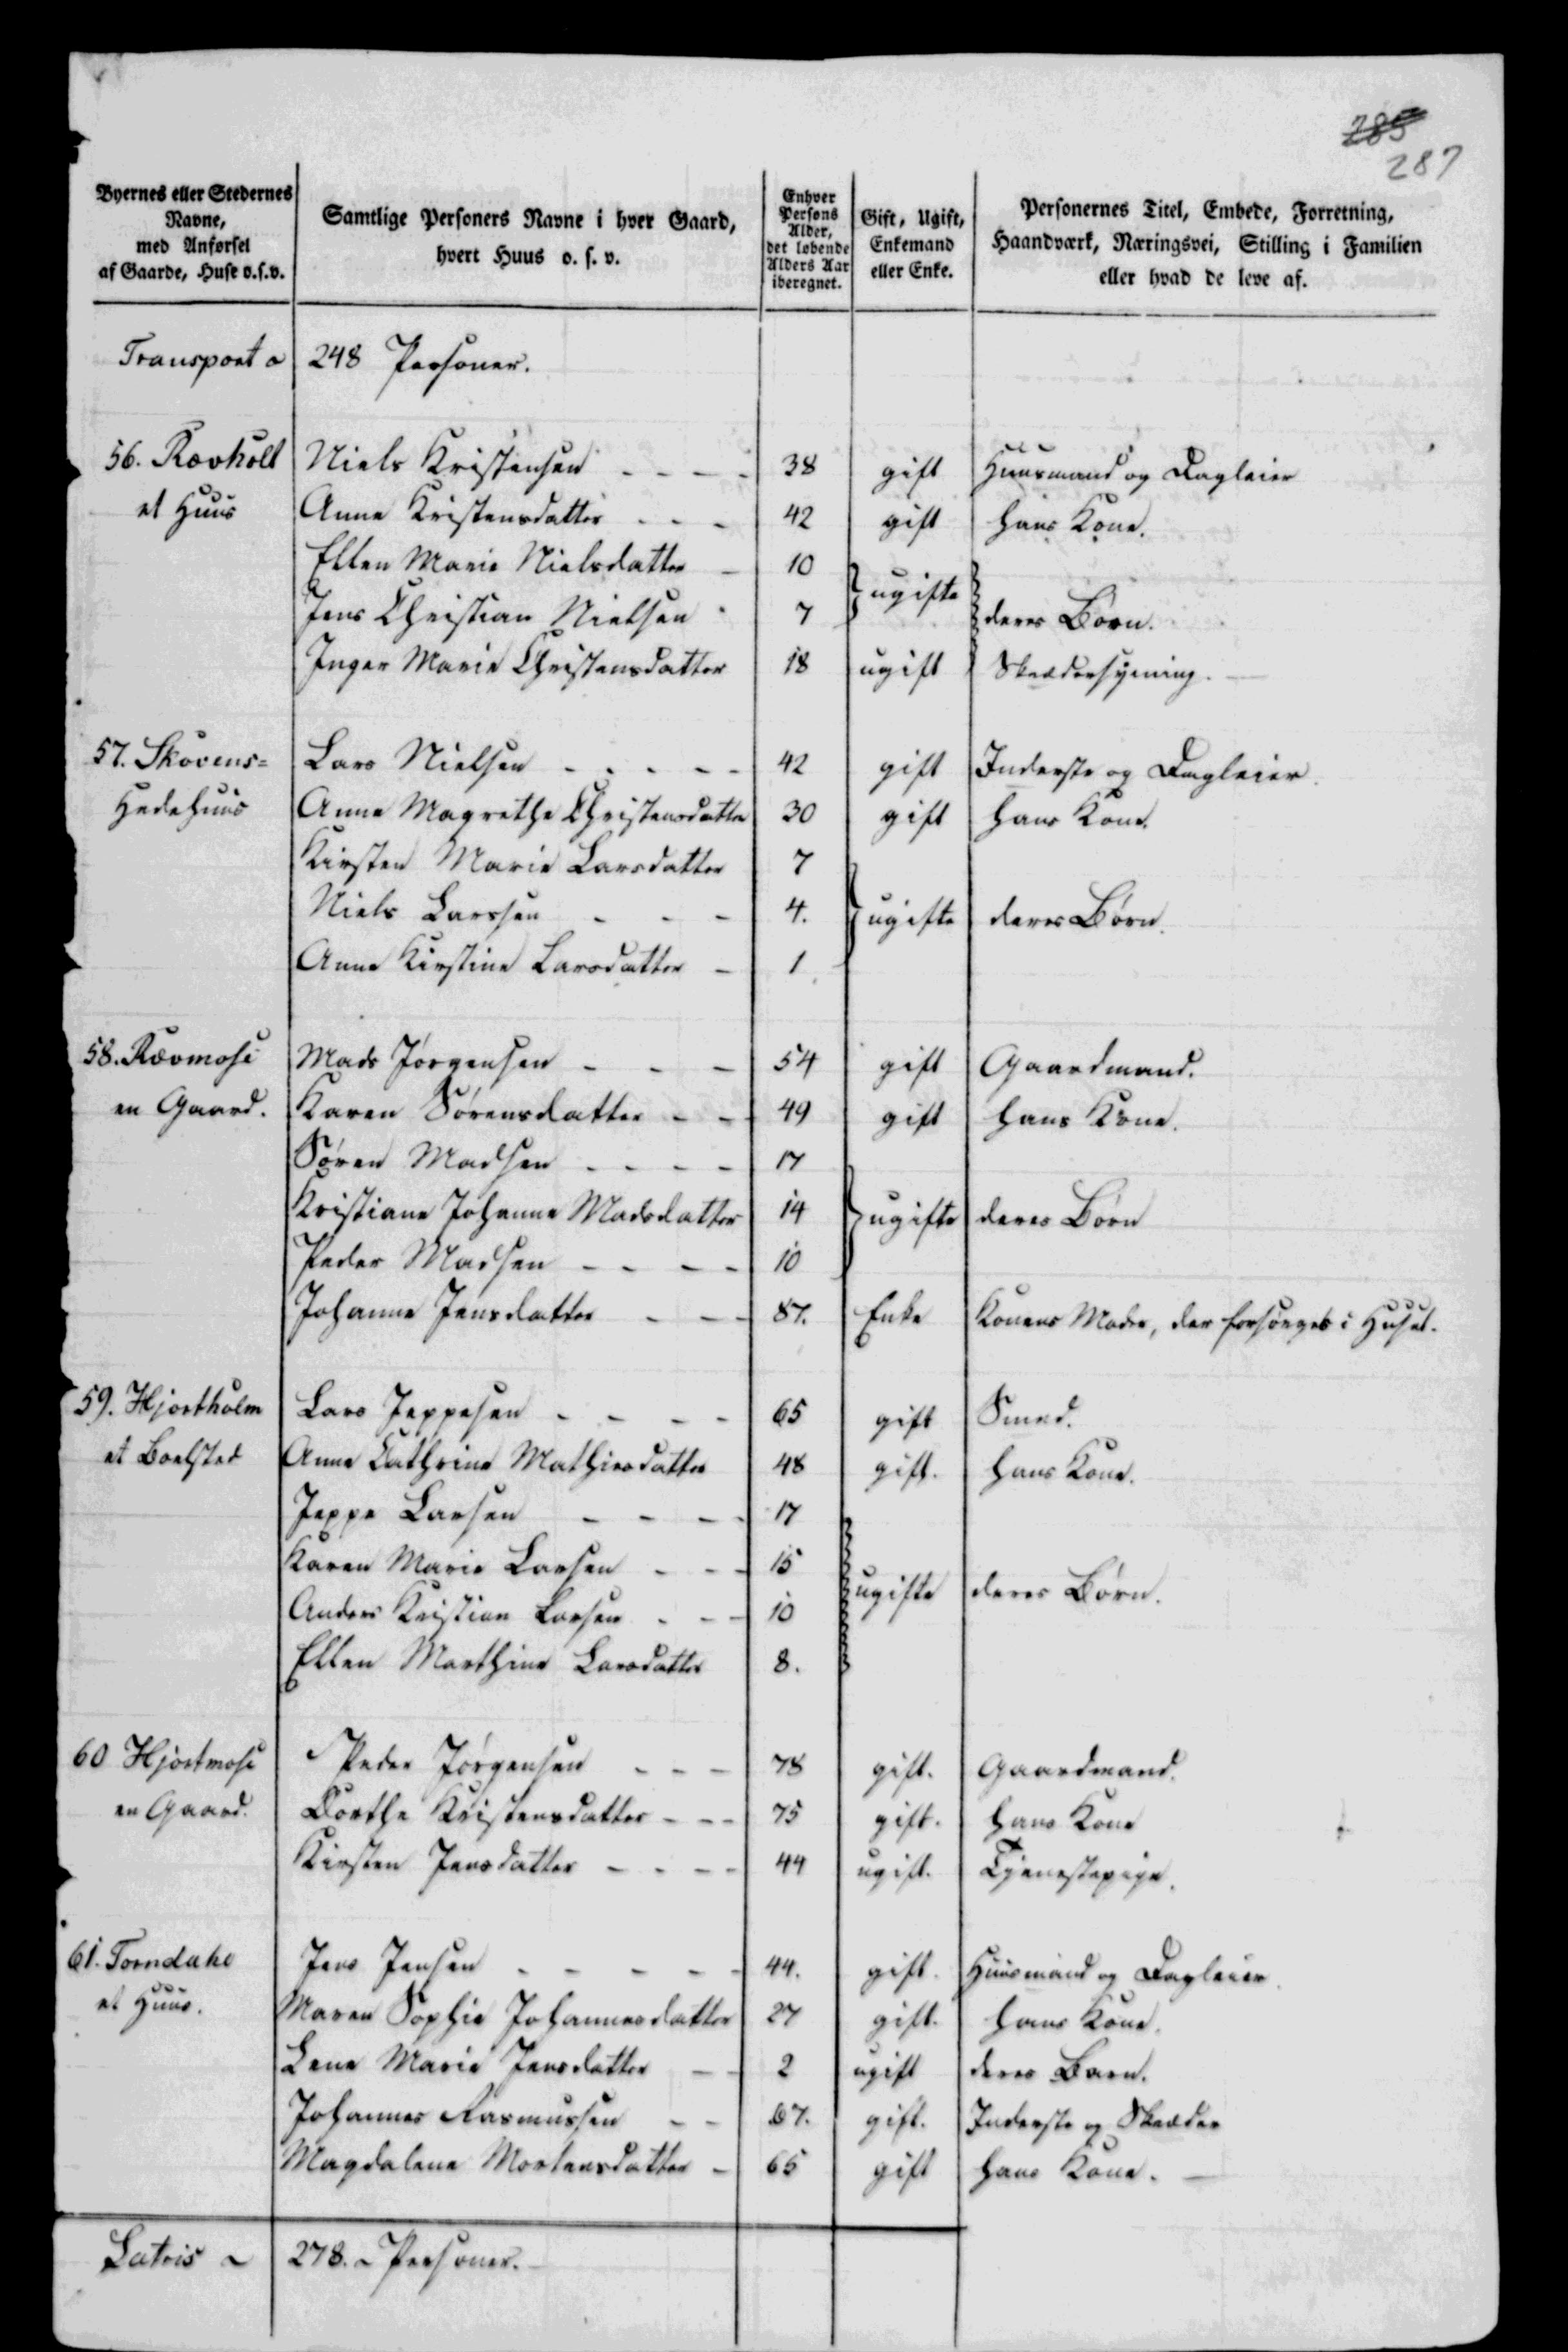 285
287
Byernes eller Stedernes Navne, med Anførsel af Gaarde, Huse o.s.v.
Samtlige Personers Navne i hver Gaard, hvert Huus o. s. v.
Enhver Persons Alder, det løbende Alders Aar iberegnet.
Gift, Ugift, Enkemand eller Enke.
Personernes Titel, Embede, Forretning, Haandværk, Næringsvei, Stilling i Familien eller hvad de leve af.
Transport 248 Personer.
56. Rævholt Niels Kristensen - - - - 38 gift Huusmand og Dagleier
et Huus Anne Kristensdatter - - - 42 gift hans Kone.
Ellen Marie Nielsdatter - 10
} ugifte
Jens Christian Nielsen 7 deres Børn.
Inger Marie Christensdatter 18 ugift Skrædersyening.
57. Skovens= Lars Nielsen - - - - - 42 gift Inderste og Dagleier.
Hedehuus Anne Magrethe Christensdatter 30 gift hans Kone.
Kirsten Marie Larsdatter 7
Niels Larssen - - - 4. } ugifte deres Børn.
Anne Kirstine Larsdatter - 1
58. Rævmose Mads Jørgensen - - - 54 gift Gaardmand.
en Gaard. Karen Sørensdatter - - 49 gift hans Kone.
Søren Madsen - - - - 17
Kristiane Johanne Madsdatter 14 } ugifte deres Børn
Peder Madsen - - - - 10
Johanne Jensdatter - - - 87. Enke Konens Moder, der forsørges i Huset.
59. Hjortholm Lars Jeppesen - - - - 65 gift Smed.
et Boelsted Anne Cathrine Mathiesdatter 48 gift. hans Kone.
Jeppe Larsen - - - - 17
Karen Marie Larsen - - - 15
ugifte deres Børn.
Anders Kristian Larsen - - - 10
Ellen Marthine Larsdatter 8.
60 Hjortmose Peder Jørgensen - - - 78 gift. Gaardmand.
en Gaard. Dorthe Kristensdatter - - - 75 gift. hans Kone
Kirsten Jensdatter - - - - 44 ugift. Tjenestepige.
61. Torndahl Jens Jensen - - - - - 44. gift. Huusmand og Dagleier.
et Huus. Maren Sophie Johannesdatter 27 gift. hans Kone.
Lene Marie Jensdatter - - 2 ugift deres Barn.
Johannes Rasmussen - - 67. gift. Inderste og Skræder
Magdalene Mortensdatter - 65 gift hans Kone. -
Latris 278. Personer.